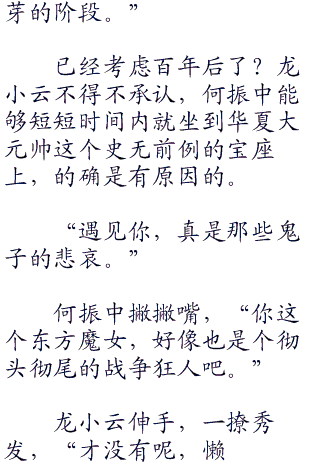 芽的阶段。”
已经考虑百年后了？龙
小云不得不承认，何振中能
够短短时间内就坐到华夏大
元帅这个史无前例的宝座
上，的确是有原因的。
“遇见你，真是那些鬼
子的悲哀。”
何振中撇撇嘴，“你这
个东方魔女，好像也是个彻
头彻尾的战争狂人吧。”
龙小云伸手，一撩秀
发，“才没有呢，懒